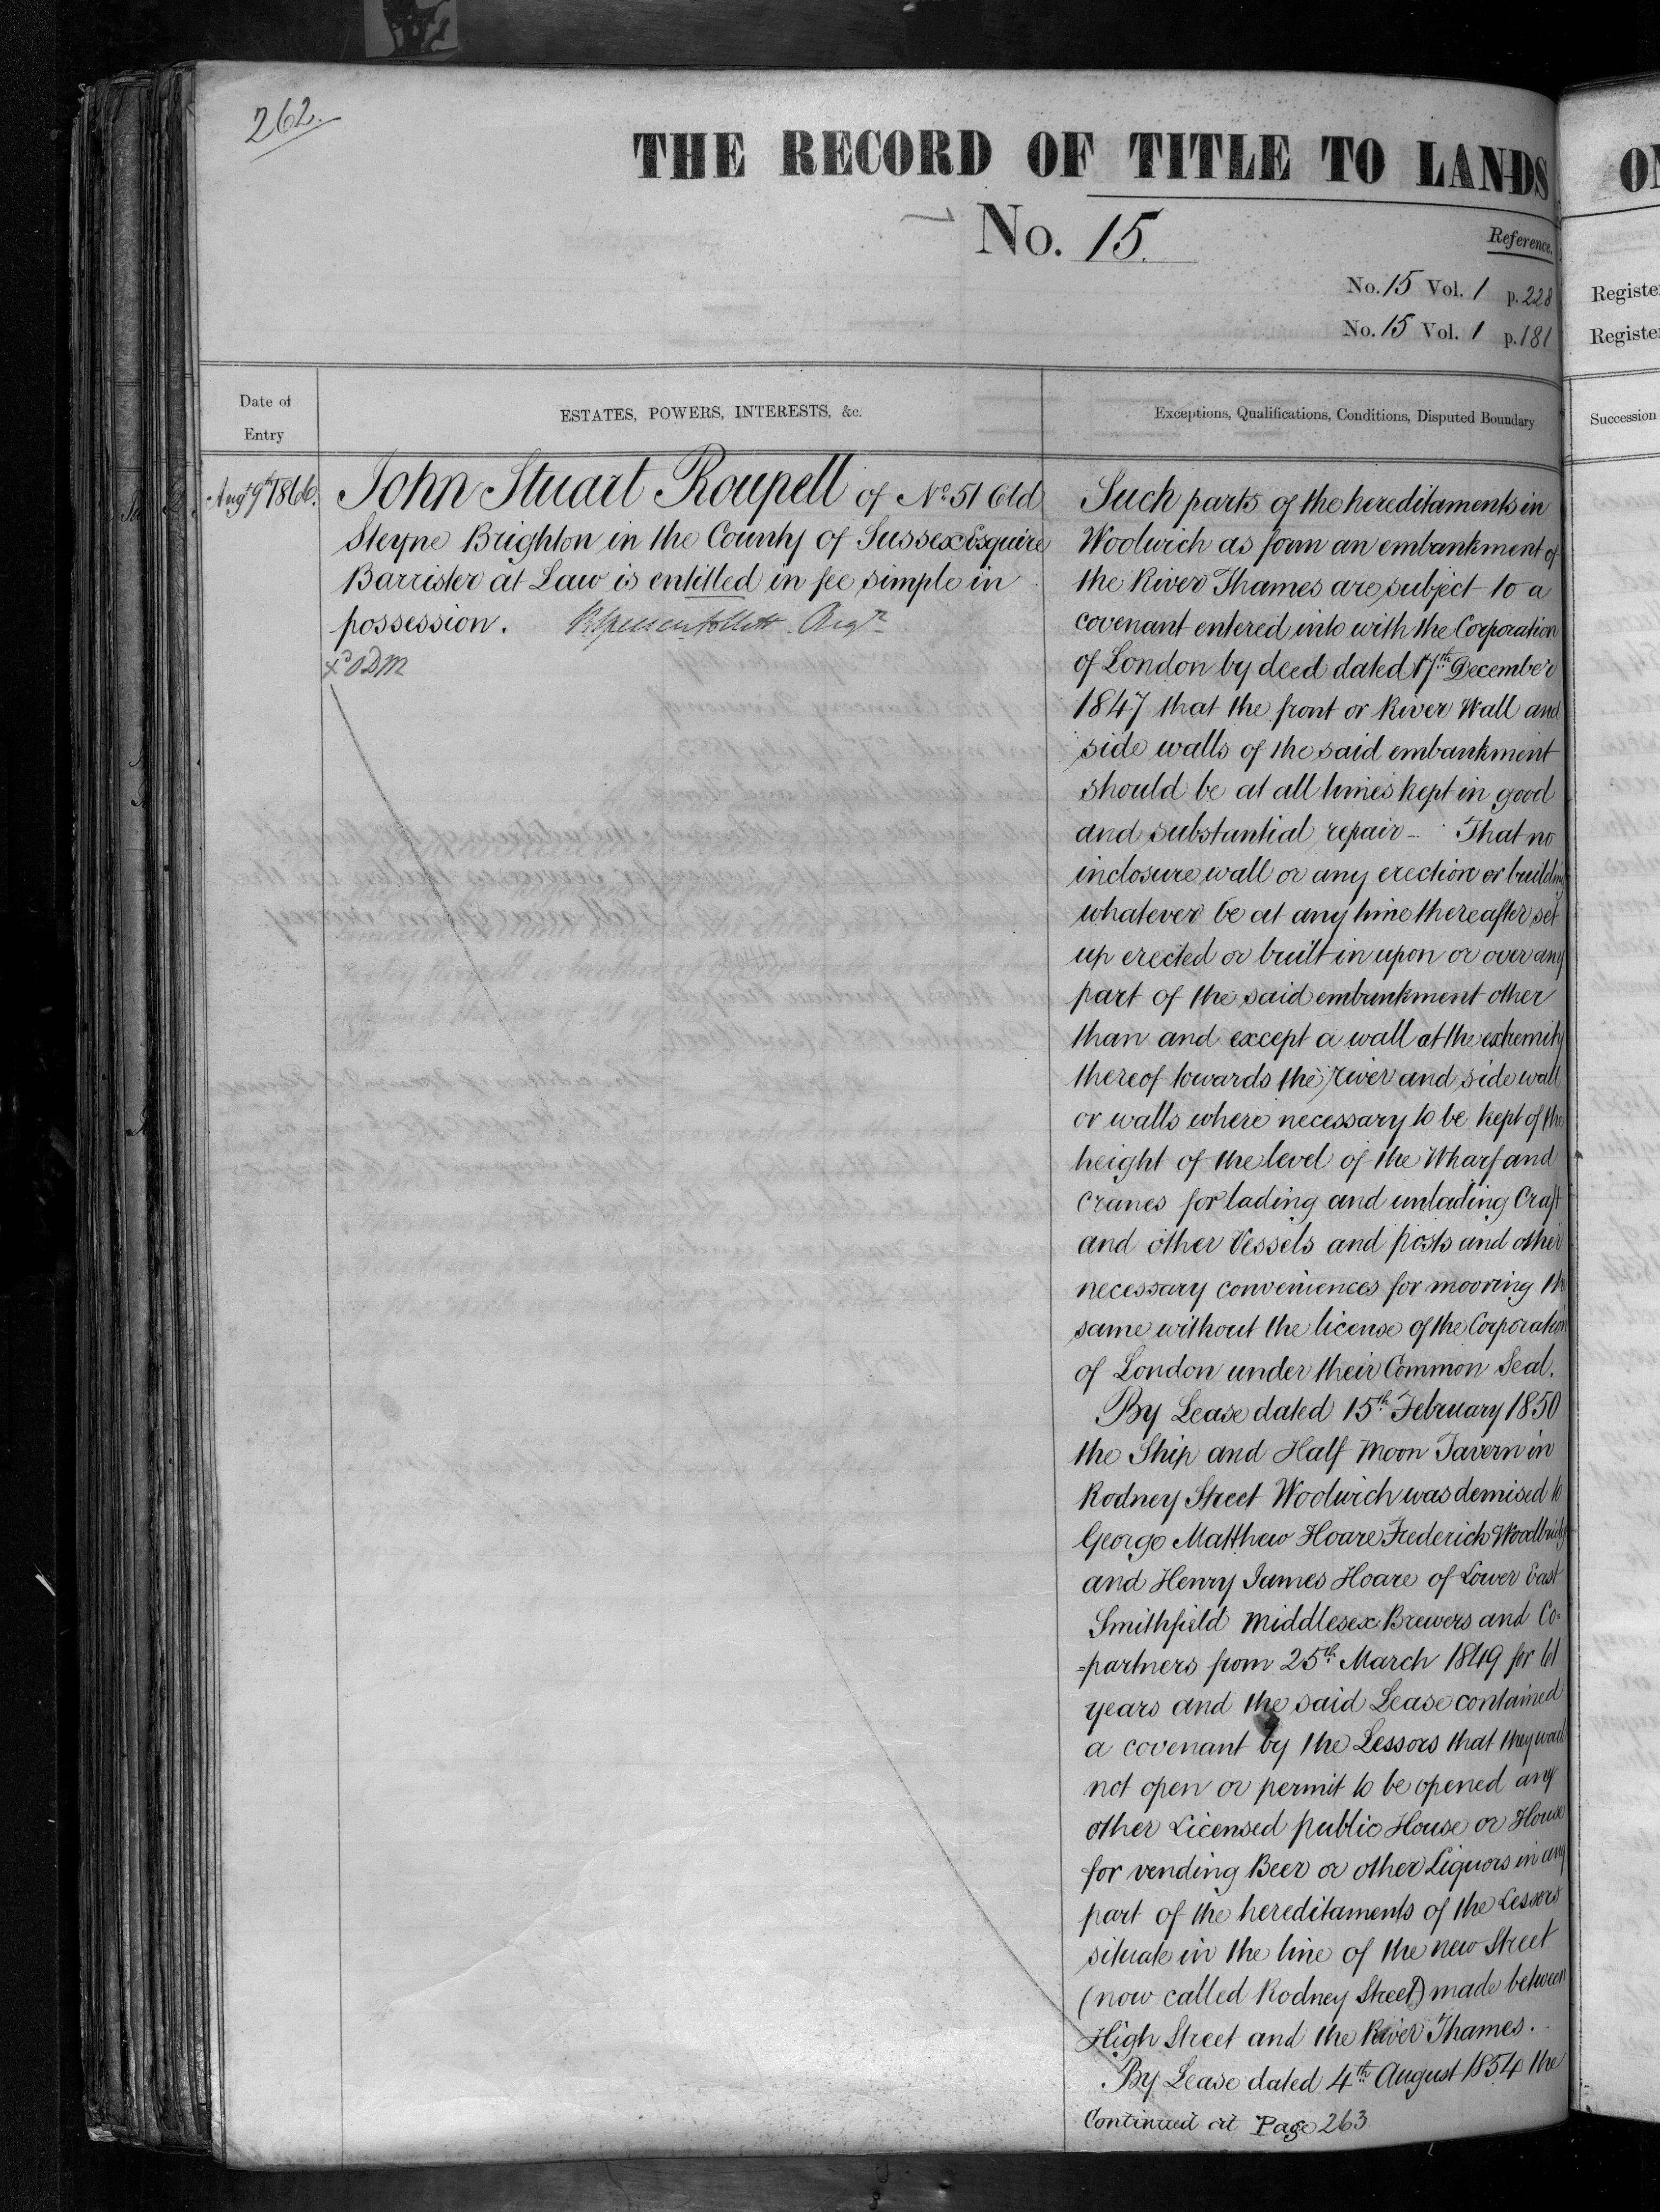 262.
THE RECORD OF TITLE TO LANDS
No. 15.
Reference.
No. 15 Vol. 1 p. 228
No. 15 Vol. 1 p. 181
Registe
Registe
Date of
Entry
ESTATES, POWERS, INTERESTS, &c.
Exceptions, Qualifications, Conditions, Disputed Boundary
Succession
Augt 9th 1866.
John Stuart Roupell of No. 51 Old
Steyne Brighton in the County of Sussex Esquire
Barrister at Law is entitled in fee simple in
possession.
Such parts of the hereditaments in
Woolwich as form an embankment of
the River Thames are subject to a
covenant entered into with the Corporation
of London by deed dated 17th December
1847 that the front or River Wall and
side walls of the said embankment
should be at all times kept in good
and substantial repair - That no
inclosure wall or any erection or building
whatever be at any time thereafter set
up erected or built in upon or over any
part of the said embankment other
than and except a wall at the extremity
thereof towards the river and side wall
or walls where necessary to be kept of the
height of the level of the Wharf and
cranes for lading and unlading Craft
and other Vessels and posts and other
necessary conveniences for mooring the
same without the license of the Corporation
of London under their Common Seal.
By Lease dated 15th February 1850
the Ship and Half Moon Tavern in
Rodney Street Woolwich was demised to
George Matthew Hoare Frederick Woodbridge
and Henry James Hoare of Lower East
Smithfield Middlesex Brewers and Co=
=partners from 25th March 1849 for 61
years and the said Lease contained
a covenant by the Lessors that they would
not open or permit to be opened any
other Licensed public House or House
for vending Beer or other Liquors in any
part of the hereditaments of the Lessors
situate in the line of the new Street
(now called Rodney Street) made between
High Street and the River Thames.
By Lease dated 4th August 1854 the
Continued at Page 263